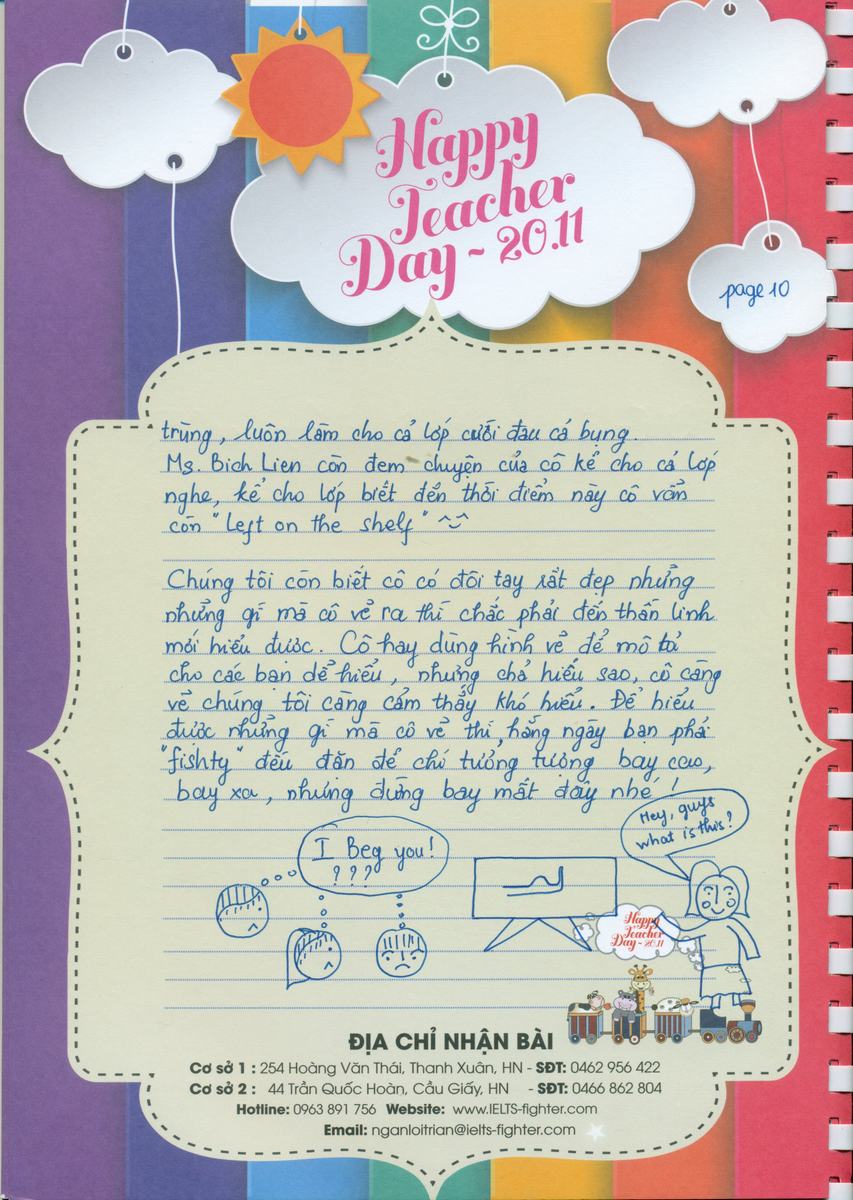 Happy
Teacher
Day ~ 20.11
page 10
trùng, luôn làm cho cả lớp cười đau cả bụng.
Ms. Bich Lien còn đem chuyện của cô kể cho cả lớp
nghe, kể cho lớp biết đến thời điểm này cô vẫn
còn "Left on the shelf" ^‿^
Chúng tôi còn biết cô có đôi tay rất đẹp nhưng
những gì mà cô vẽ ra thì chắc phải đến thần linh
mới hiểu được. Cô hay dùng hình vẽ để mô tả
cho các bạn dễ hiểu, nhưng chả hiểu sao, cô càng
vẽ chúng tôi càng cảm thấy khó hiểu. Để hiểu
được những gì mà cô vẽ thì, hằng ngày bạn phải
"fishty" đều đặn để chí tưởng tượng bay cao,
bay xa, nhưng đừng bay mất đây nhé!
Hey, guys
what is this?
I Beg you!
? ? ?
Happy
Teacher
Day ~ 20.11
ĐỊA CHỈ NHẬN BÀI
Cơ sở 1 : 254 Hoàng Văn Thái, Thanh Xuân, HN - SĐT: 0462 956 422
Cơ sở 2 : 44 Trần Quốc Hoàn, Cầu Giấy, HN - SĐT: 0466 862 804
Hotline: 0963 891 756 Website: www.IELTS-fighter.com
Email: nganloitrian@ielts-fighter.com